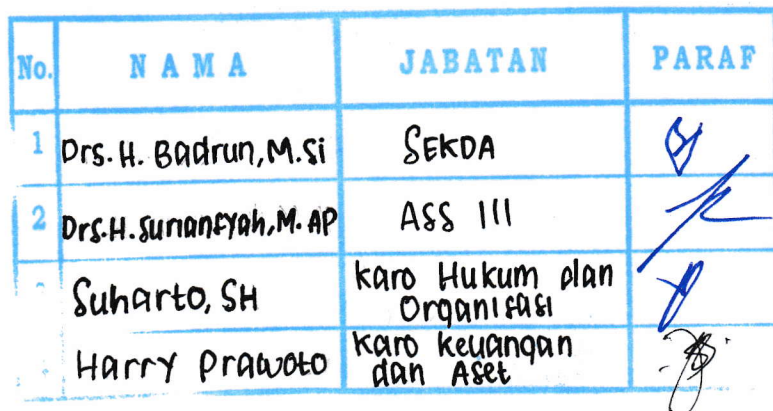 No. N A M A JABATAN PARAF
1 Drs. H. Badrun, M.Si SEKDA
2 Drs. H. Suriansyah, M. AP ASS III
Suharto, SH Karo Hukum dan
Organisasi
Harry Prawoto Karo keuangan
dan Aset